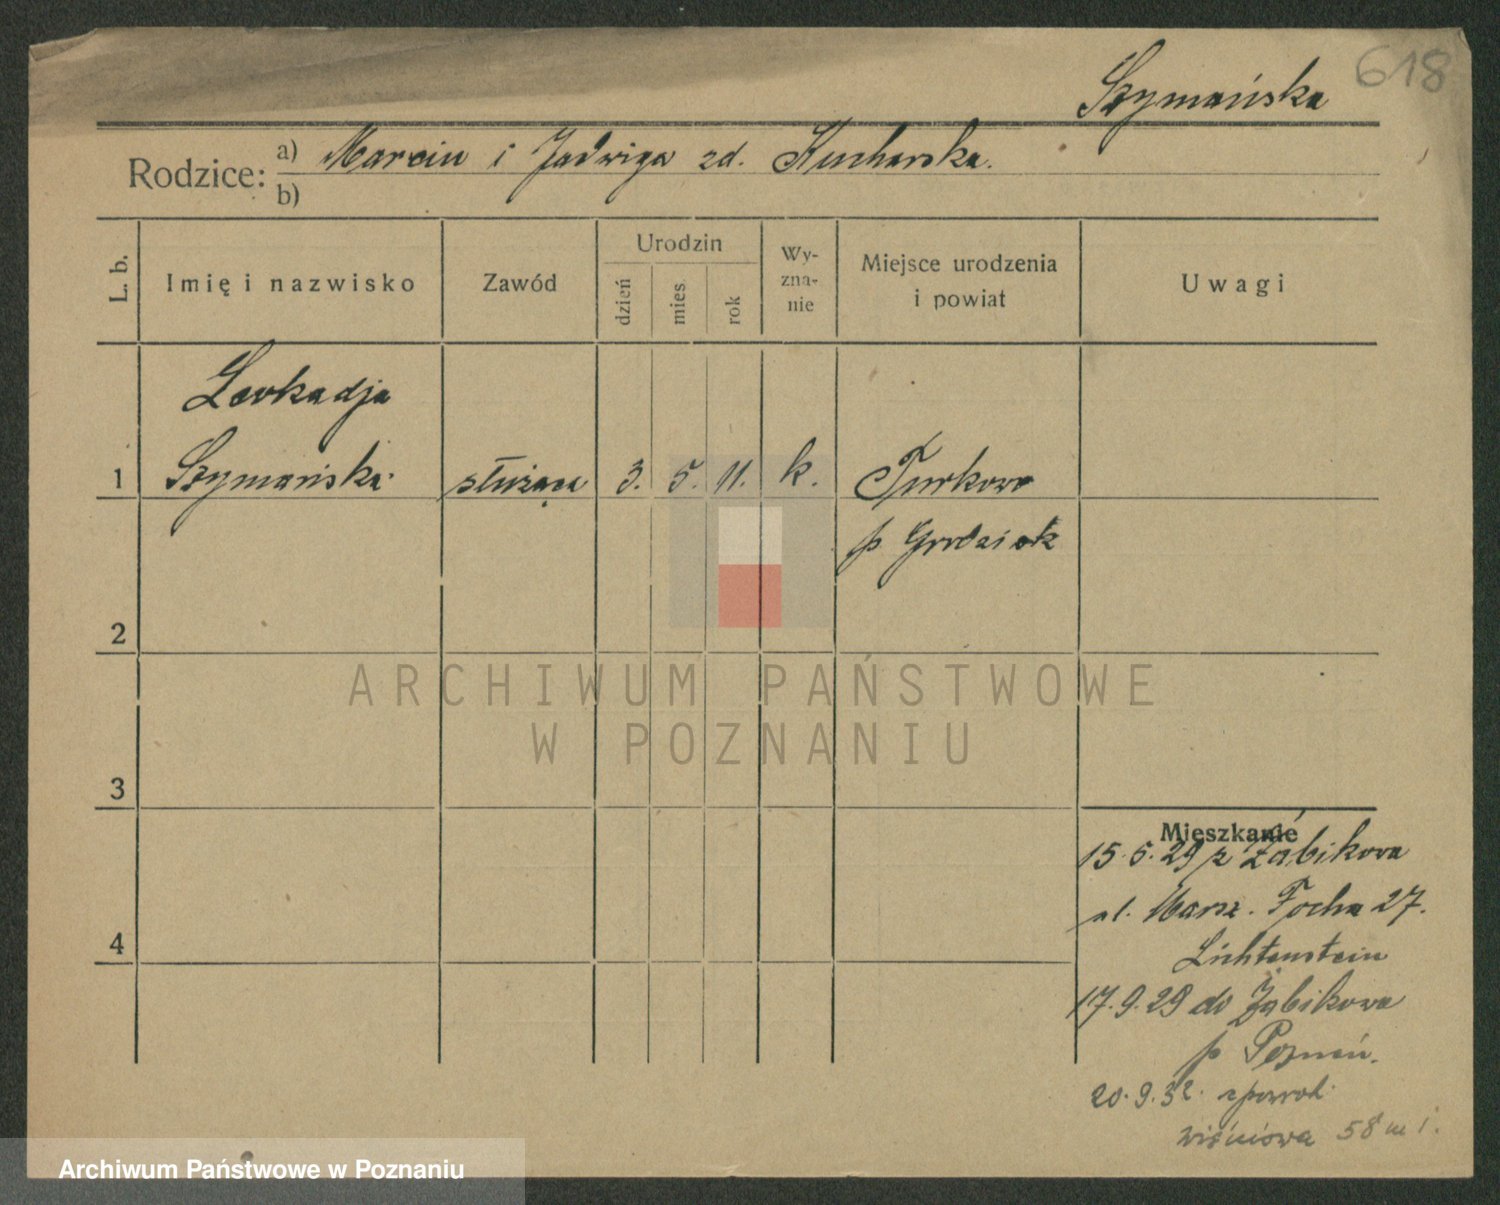 618
Szymańska
Rodzice: a) Marcin i Jadwiga zd. Kucharska.
b)
L. b.
Imię i nazwisko
Zawód
Urodzin
dzień
mies.
rok
Wy-
zna-
nie
Miejsce urodzenia
i powiat
Uwagi
Leokadja
1 Szymańska służąca 3. 5. 11. k. Turkowo
p Grodzisk
2
3
4
Mieszkanie
15.5.29 z Żabikowa
ul. Marsz. Focha 27.
Lichtenstein
17.9.29 do Żabikowa
p Poznań.
20.9.32. zpowrot.
Wiśniowa 58 m 1.
ARCHIWUM PAŃSTWOWE
W POZNANIU
Archiwum Państwowe w Poznaniu